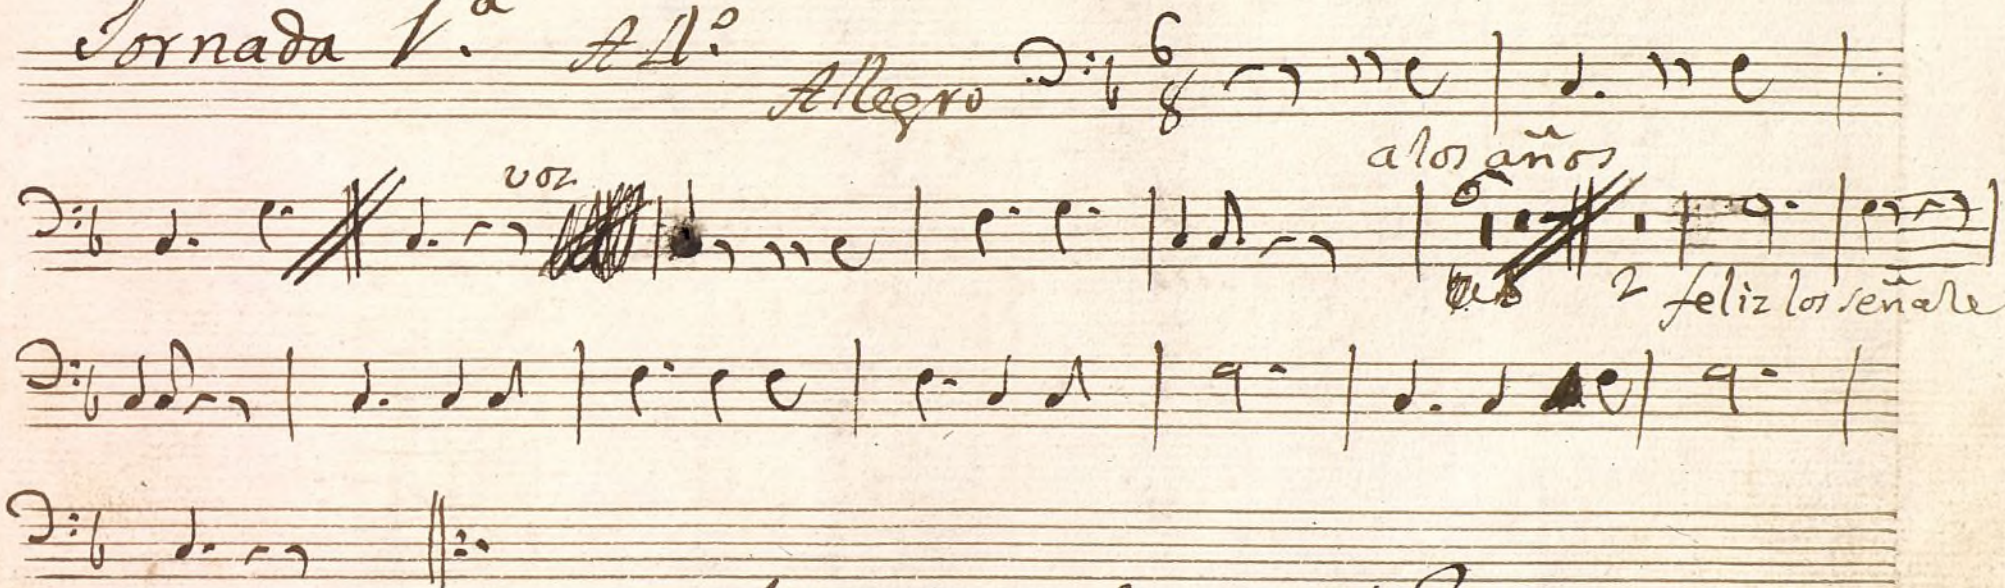 Jornada 1.ª All.º
Allegro 6 8
a los años
voz
2 feliz los señale